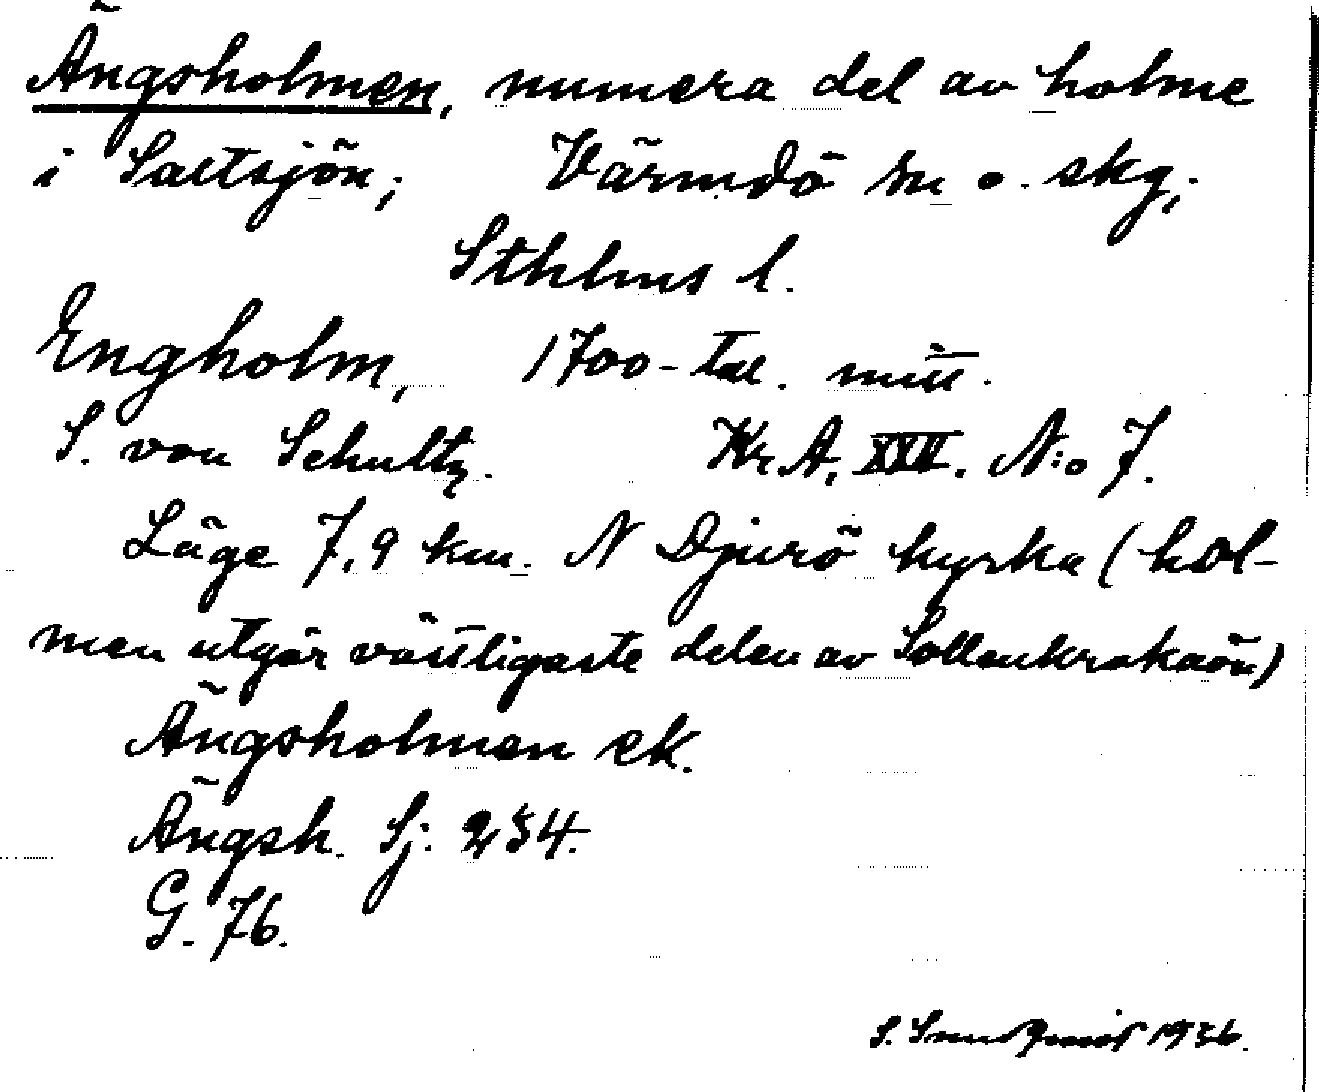 Ängsholmen, numera del av holme
i Saltsjön; Värmdö sn o. skg;
Sthlms l.
Engholm, 1700-tal. mitt.
S. von Schultz. Kr.A. XXV. N:o 7.
Läge 7,9 km. N Djurö kyrka (hol-
men utgör västligaste delen av Sollenkrokaön)
Ängsholmen ek.
Ängsh. Sj: 234.
G. 76.
S. 1936.